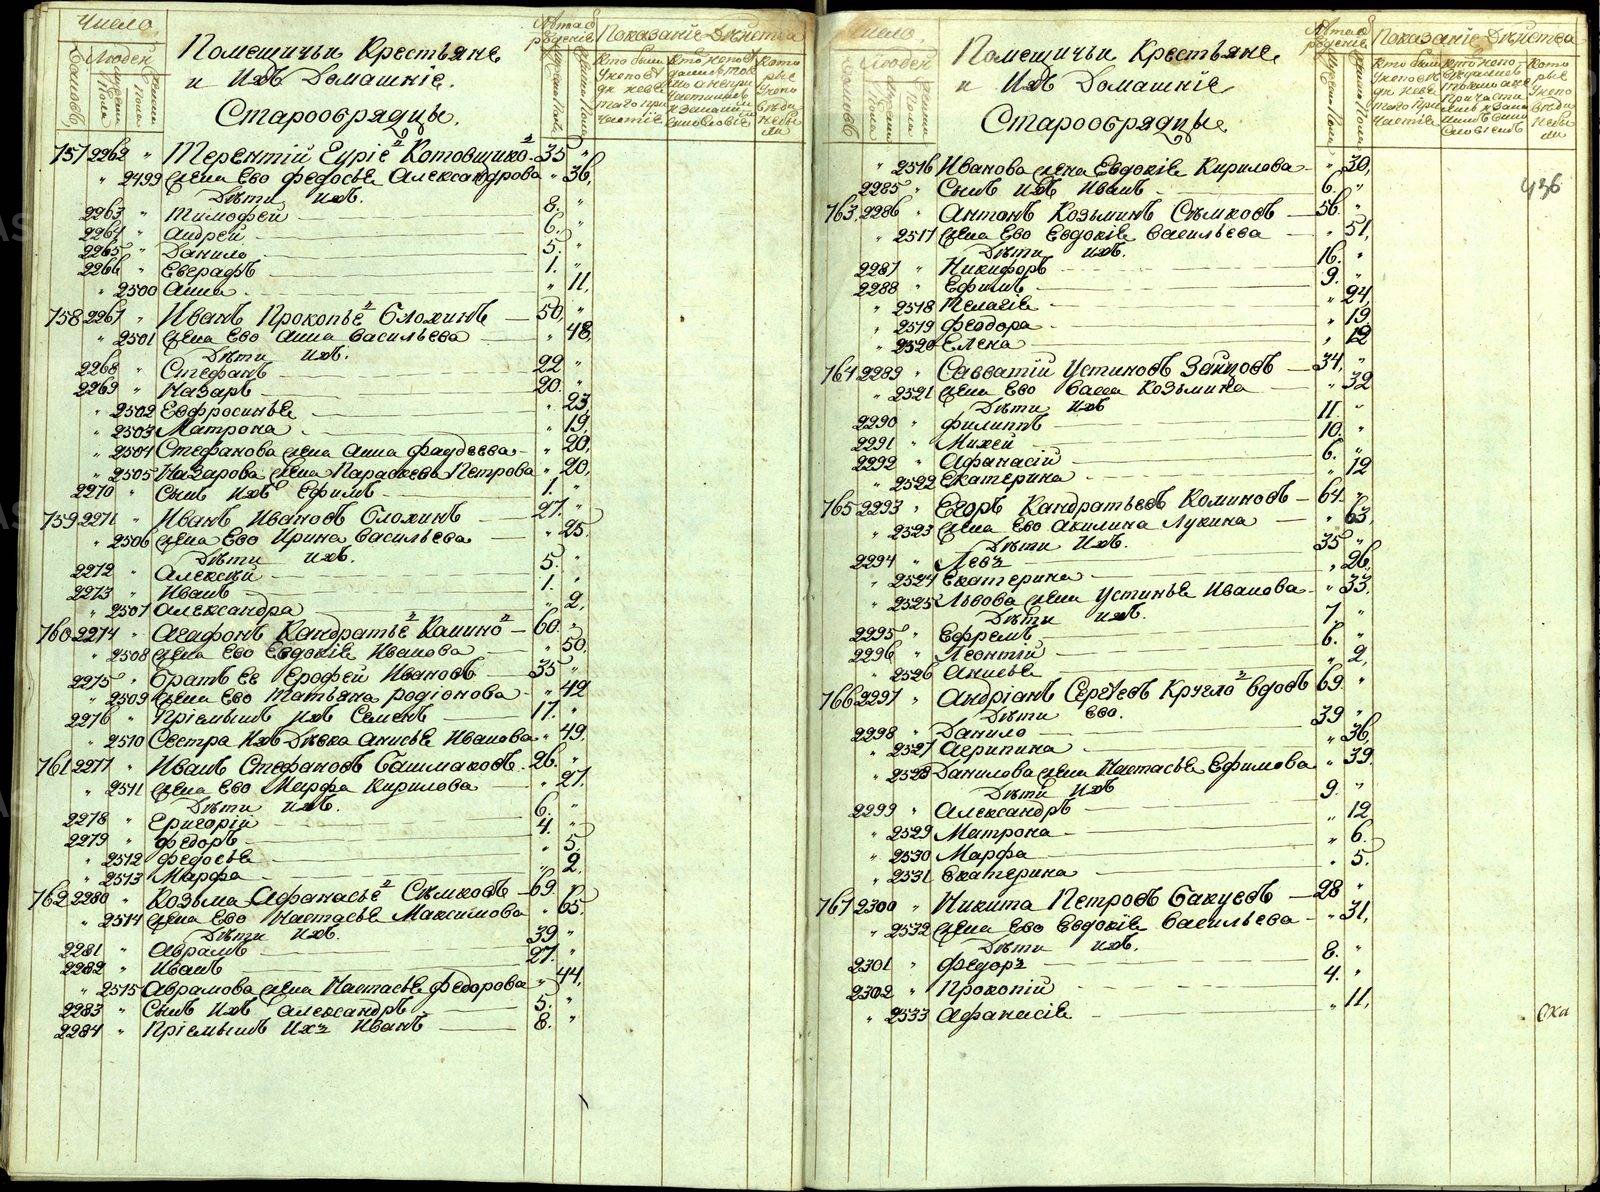 Число
Людей
Помещичьи Крестьяне
и Ихъ Домашніе.
Старообрядцы.
Лета отъ рѣденіе
Показаніе Дѣйства
757 2262 " Терентій Гуріе Котовщико 35 "
" 2499 жена Ево Федосья Александрова " 36,
Дѣти ихъ.
2263 " Тимофей 8. "
2264 " Андрей 6. "
2265 " Данило 5. "
2266 " Евграфъ 1. "
" 2500 Анна " 11,
758 2267 " Иванъ Прокопье Блохинъ 50, "
" 2501 жена Ево Анна Васильева " 48,
Дѣти ихъ.
2268 " Стефанъ 22 "
2269 " Назаръ 20. "
" 2502 Евфросинья " 23,
" 2503 Матрона " 19,
" 2504 Стефанова жена Анна Фаддѣева " 20,
" 2505 Назарова жена Параскева Петрова " 20,
2270 " Сынъ ихъ Ефимъ 1. "
759 2271 " Иванъ Ивановъ Блохинъ 27. "
" 2506 жена Ево Ирина Васильева " 25.
Дѣти ихъ.
2272 " Алексѣй 5. "
2273 " Иванъ 1. "
" 2507 Александра " 2,
760 2274 " Агафонъ Кандратье Калино 60. "
" 2508 жена Ево Евдокія Иванова " 50,
2275 " Братъ Ея Ерофей Ивановъ 35 "
" 2509 жена Ево Татьяна Родіонова " 42
2276 " Пріемышъ ихъ Семенъ 17. "
" 2510 Сестра Ихъ Дѣвка Анисья Иванова " 49.
761 2277 " Иванъ Стефановъ Башмаковъ 26. "
" 2511 жена Ево Марфа Кирилова " 27.
Дѣти ихъ.
2278 " Григорій 6. "
2279 " Федоръ 4. "
" 2512 Федосья " 5.
" 2513 Марфа " 2,
762 2280 " Козьма Афанасье Сѣмковъ 69. "
" 2514 жена Ево Настасья Максимова " 65.
Дѣти ихъ.
2281 " Аврамъ 39 "
2282 " Иванъ 27. "
" 2515 Аврамова жена Настасья Федорова " 44,
2283 " Сынъ Ихъ Александръ 5. "
2284 " Пріемышъ Ихъ Иванъ 8. "
Число
Людей
Помещичьи Крестьяне
и Ихъ Домашніе
Старообрядцы
Показаніе Дѣйства
" 2516 Иванова жена Евдокія Кирилова " 30,
2285 " Сынъ ихъ Иванъ 6. "
436
763 2286 " Антонъ Козьминъ Сѣмковъ 56. "
" 2517 жена Ево Евдокія Васильева " 51,
Дѣти ихъ.
2287 " Никифоръ 16. "
2288 " Ефимъ 9. "
" 2518 Пелагія " 24,
" 2519 Феодора " 19
" 2520 Елена " 12
764 2289 " Савватій Устиновъ Зайцовъ 34, "
" 2521 жена Ево Васса Козьмина " 32
Дѣти ихъ
2290 " Филиппъ 11. "
2291 " Михей 10. "
2292 " Афанасій 6. "
" 2522 Екатерина " 12
765 2293 " Егоръ Кандратьевъ Калиновъ 64. "
" 2523 жена Ево Акилина Лукина " 63,
Дѣти Ихъ.
2294 " Левъ 35 "
" 2524 Екатерина " 26,
" 2525 Львова жена Устинья Иванова " 33.
Дѣти ихъ.
2295 " Ефремъ 7 "
2296 " Леонтій 6. "
" 2526 Анисья " 2,
766 2297 " Андріанъ Сергѣевъ Кругло вдовъ 69. "
Дѣти Ево.
2298 " Данило 39 "
" 2527 Агрипина " 36,
" 2528 Данилова жена Настасья Ефимова " 39.
Дѣти ихъ
2299 " Александръ 9. "
" 2529 Матрона " 12
" 2530 Марфа " 6.
" 2531 Екатерина " 5.
767 2300 " Никита Петровъ Бакуевъ 28 "
" 2532 жена Ево Евдокія Васильева " 31,
Дѣти ихъ.
2301 " Федоръ 8. "
2302 " Прокопій 4. "
" 2533 Афанасія " 11,